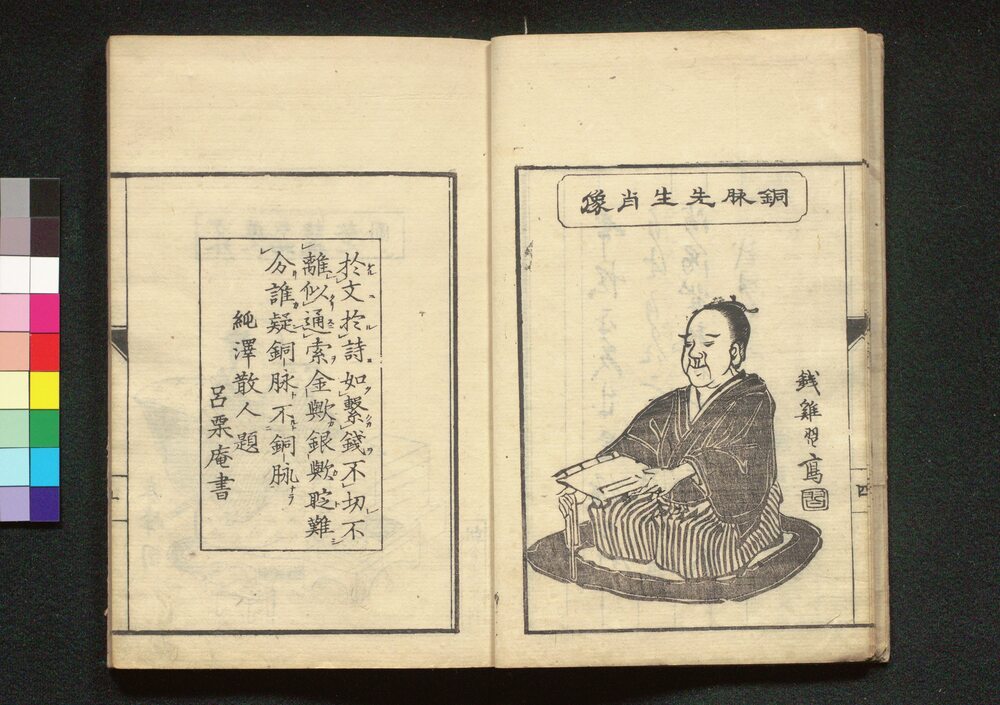 銅脉先生肖像
銭雞翌寫
於文於詩如繋錢不切不
離似通索金歟銀歟聢難
分誰疑銅脉不銅脉
純澤散人題
呂栗庵書
四